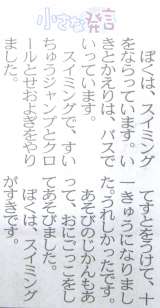 小さな発言
ぼくは、スイミング
をならっています。い
きとかえりは、バスで
いっています。
スイミングで、すい
ちゅうジャンプとクロ
ールとせおよぎをやり
ました。
てすとをうけて、十
一きゅうになりまし
た。うれしかったです。
あそびのじかんもあ
って、おにごっこをし
てあそびました。
ぼくは、スイミング
がすきです。